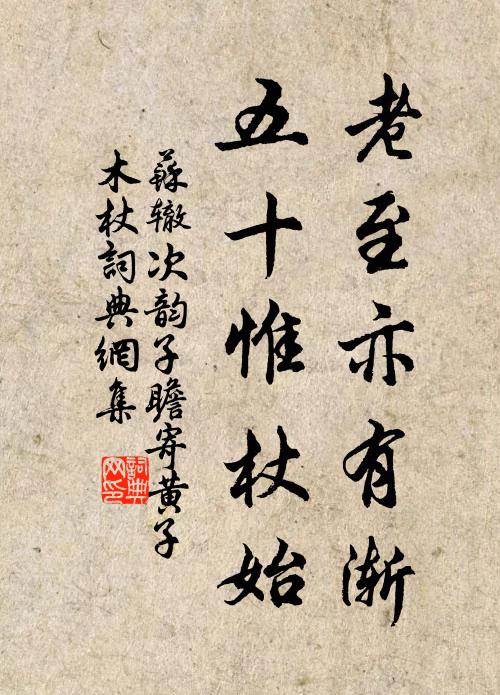 老至亦有渐
五十惟杖始
蘇辙次韵子瞻寄黄子
木杖詞典網集
詞典网印